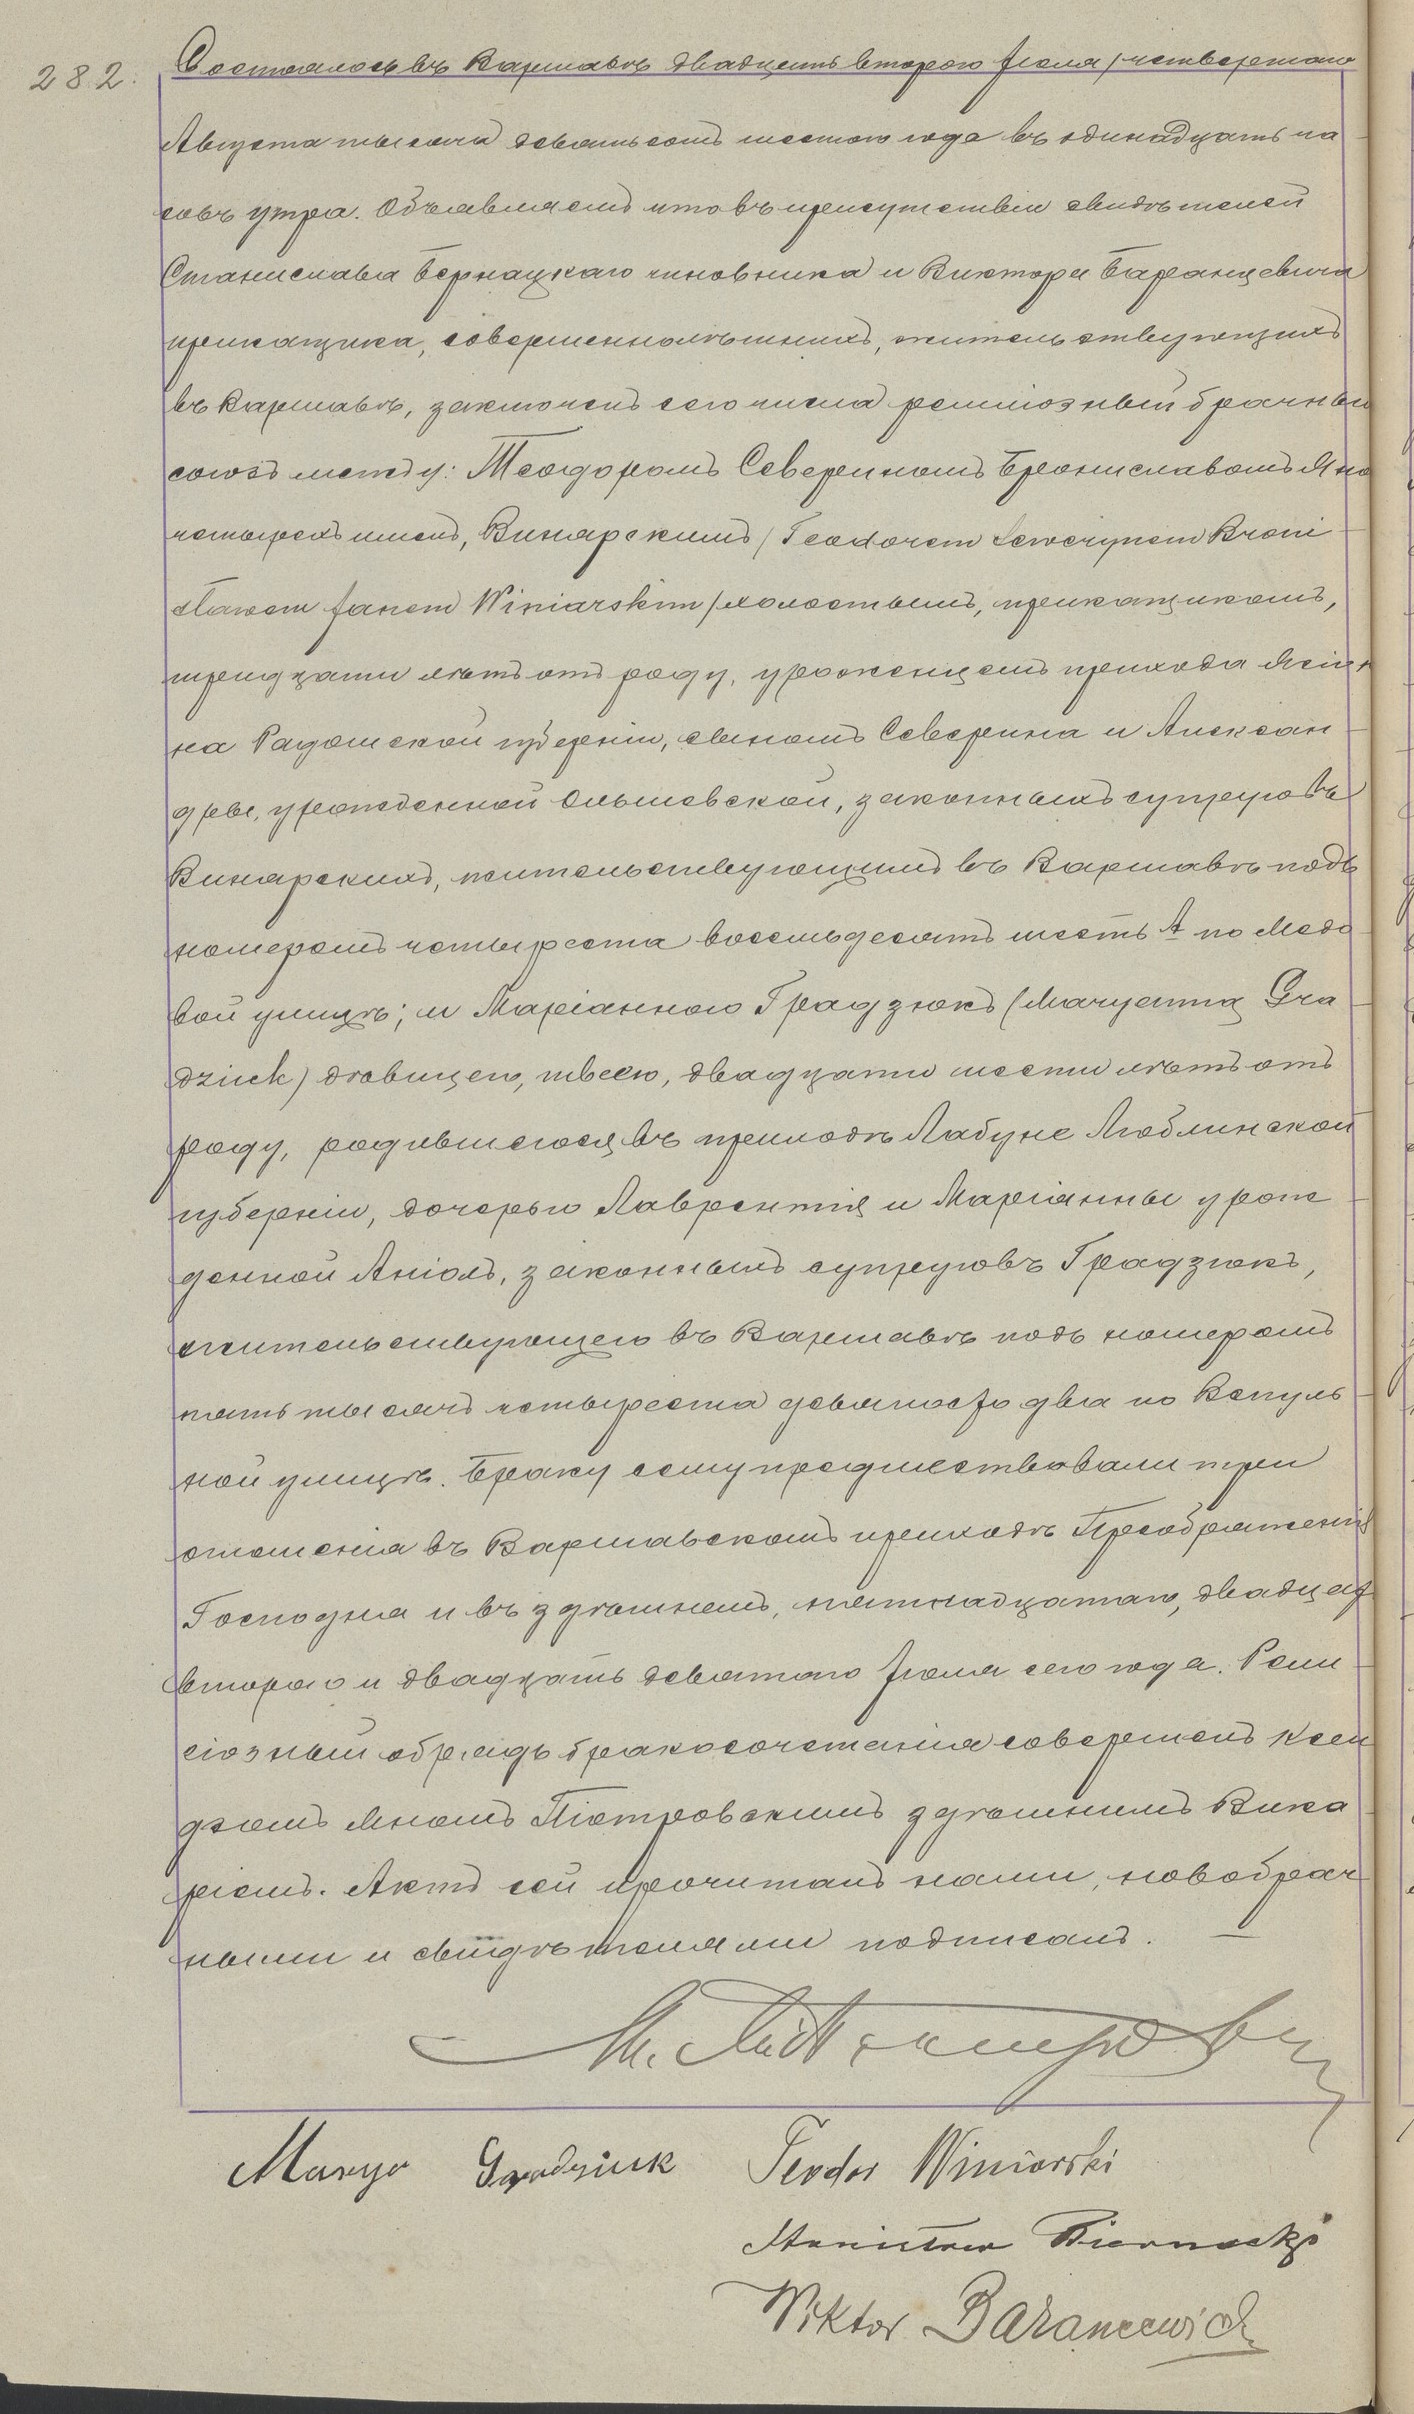 282.
Состоялось въ Варшавѣ двадцать второго Іюля / четвертаго
Августа тысяча девятьсотъ шестого года въ одинадцать ча
совъ утра. Объявляемъ что въ присутствіи свидѣтелей
Станислава Бернацкаго чиновника и Виктора Баранцевича
прикащика, совершеннолѣтнихъ, жительствующихъ
въ Варшавѣ, заключенъ сего числа религіозный брачный
союзъ между: Теодоромъ Севериномъ Брониславомъ Яно
четырехъ именъ, Винярскимъ / Teodorem Sewerynem Broni
sławem Janem Winiarskim / холостымъ, прикащикомъ,
тридцати лѣтъ отъ роду, уроженцемъ прихода
на Радомской губерніи, сыномъ Северина и Алексан
дры, урожденной Ольшевской, законныхъ супруговъ
Винярскихъ, жительствующимъ въ Варшавѣ подъ
номеромъ четыреста восемьдесятъ шесть А по Медо
вой улицѣ; и Маріанною Градзюкъ (Maryanną Gra
dziuk) дѣвицею, швеею, двадцати шести лѣтъ отъ
роду, родившеюся въ приходѣ Лабуне Люблинской
губерніи, дочерью Лаврентія и Маріанны урож
денной Аніолъ, законныхъ супруговъ Градзюкъ,
жительствующею въ Варшавѣ подъ номеромъ
пять тысячъ четыреста девяносто два по Вспуль
ной улицѣ. Браку сему предшествовали три
оглашенія въ Варшавскомъ приходѣ Преображенія
Господня и въ здѣшнемъ, пятнадцатаго, двадцать
второго и двадцать девятаго Іюля сего года. Рели
гіозный обрядъ бракосочетанія совершенъ Ксен
дзомъ Яномъ Піотровскимъ здѣшнимъ Вика
ріемъ. Актъ сей прочитанъ нами, новобрач
ными и свидѣтелями подписанъ. —
Marya Gradziuk Teodor Winiarski
Stanisław Biernacki
Wiktor Barancewicz